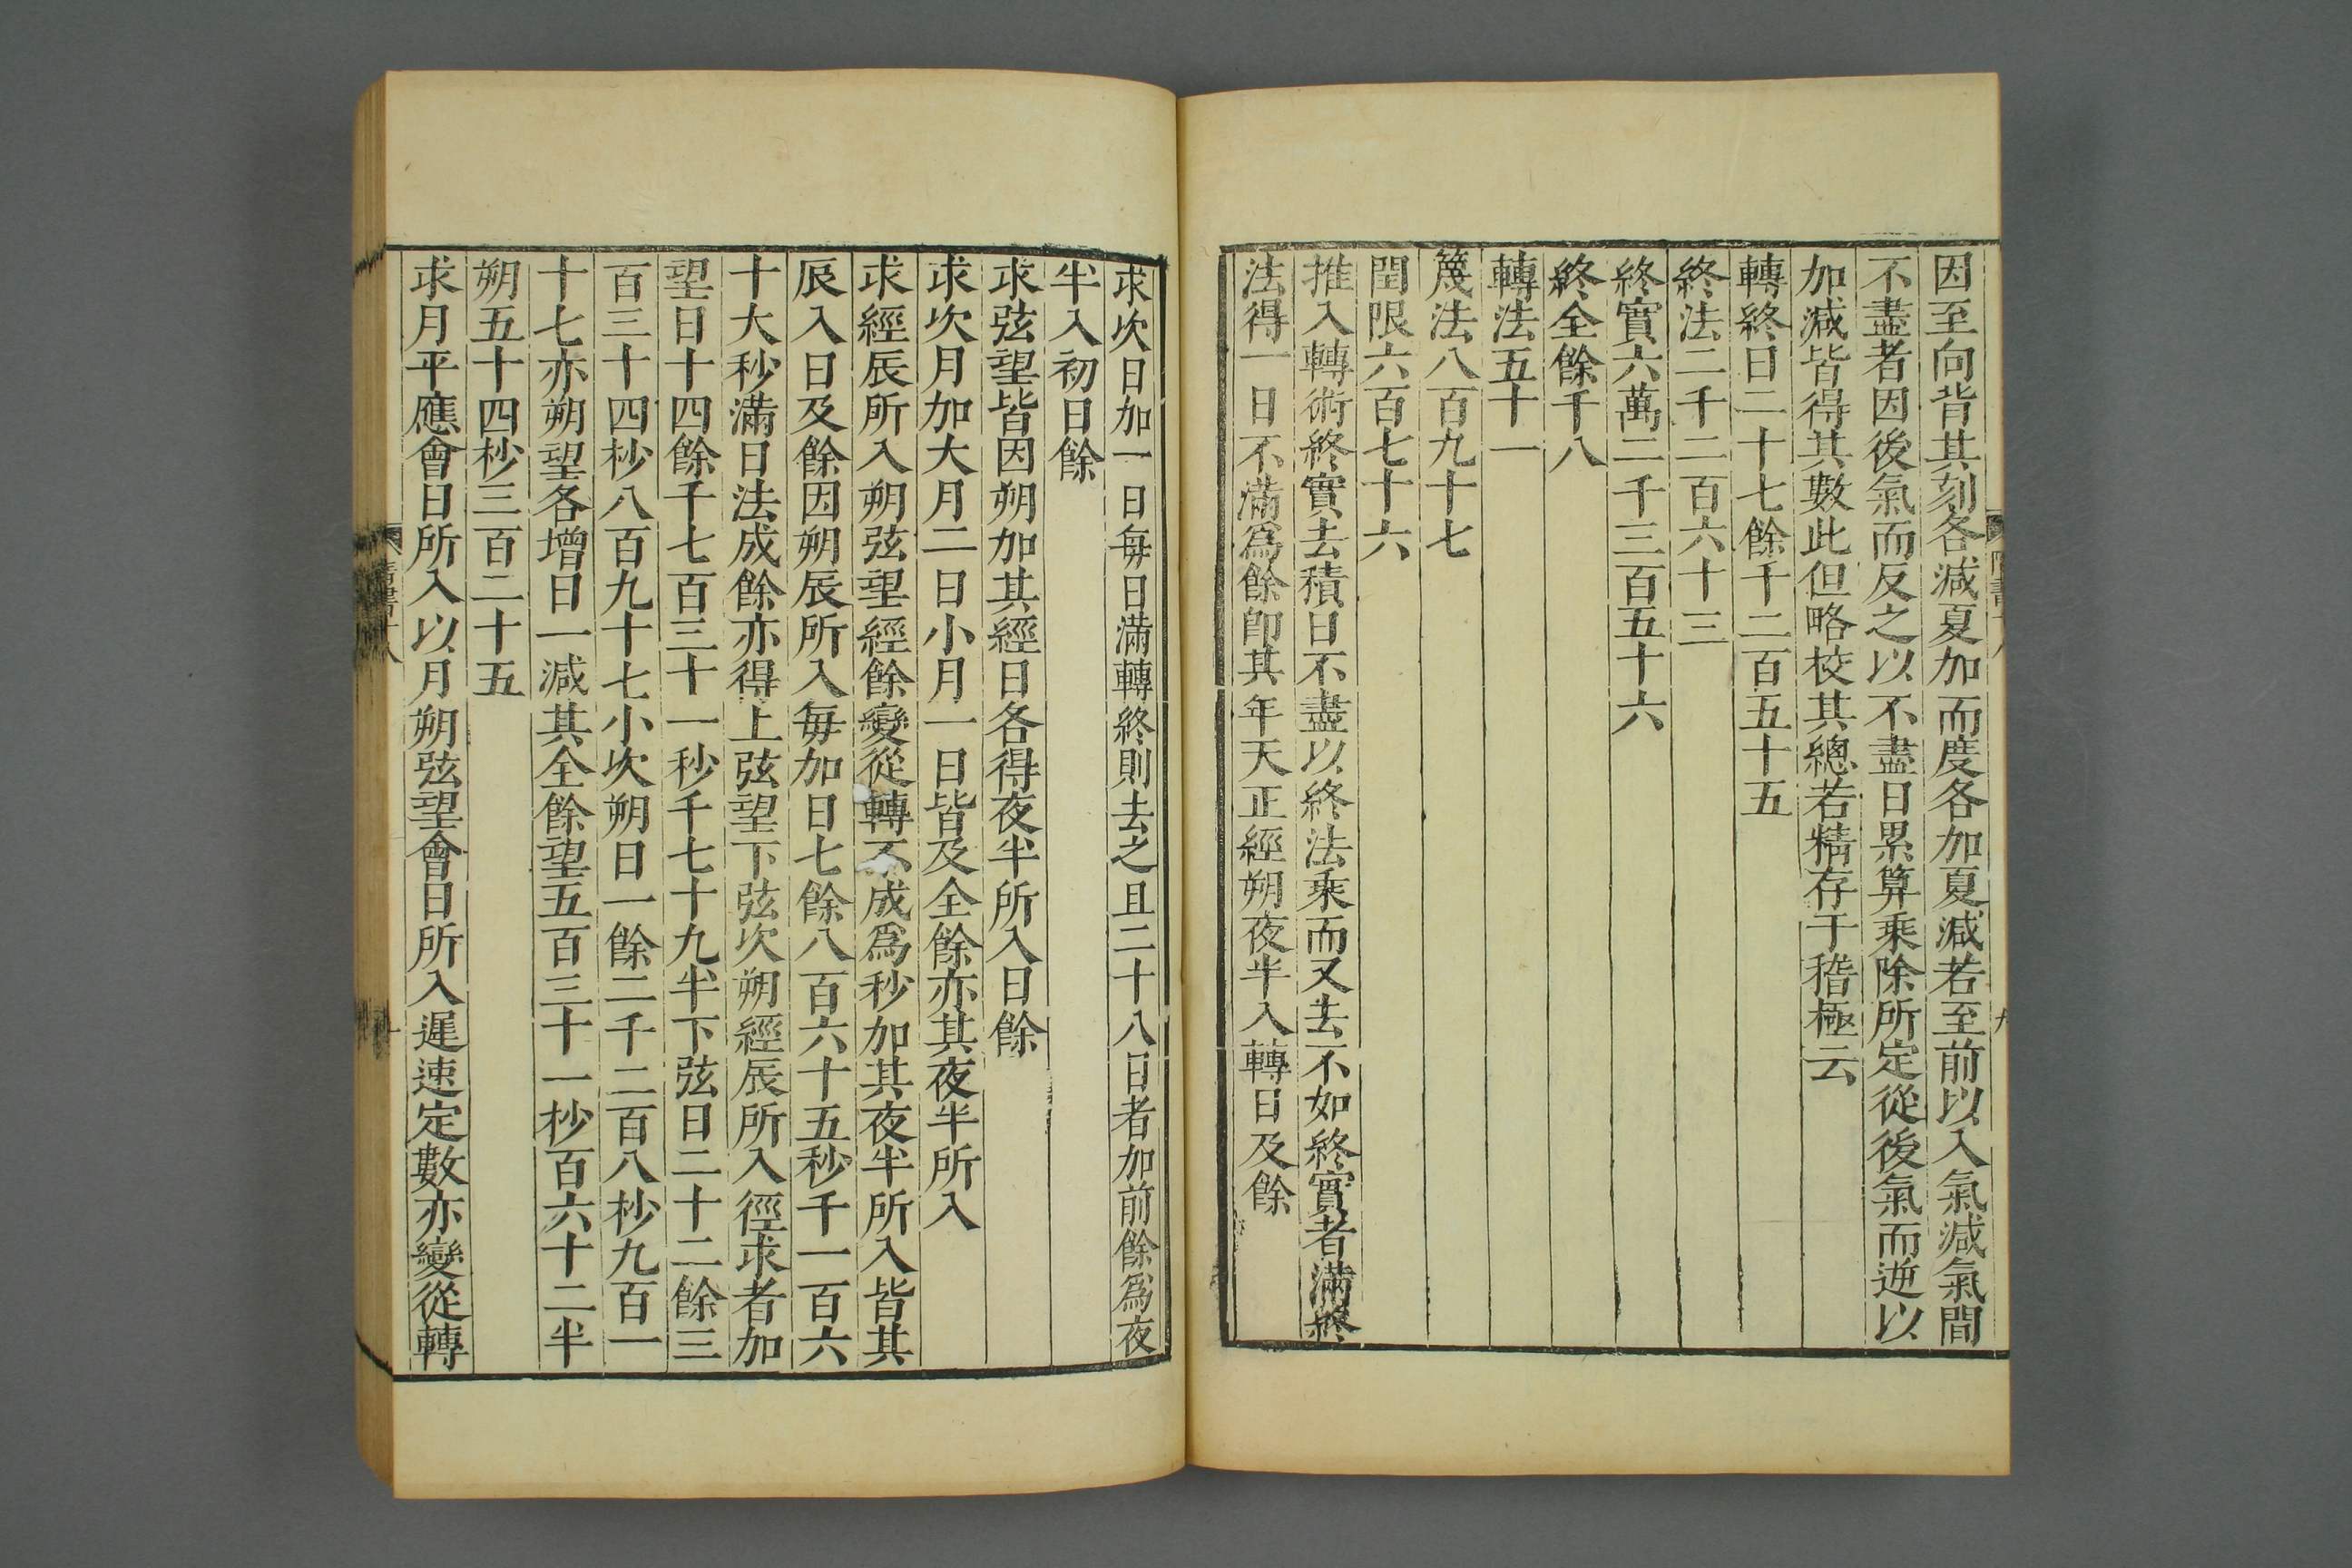 因至向背其刻各减夏加而度各加夏减若至前以入氣减氣間
不盡者因後氣而反之以不盡日累算乘除所定從後氣而逆以
加减皆得其數此但略校其總若精存于稽極云
轉終日二十七餘千二百五十五
終法二千二百六十三
終實六萬二千三百五十六
終全餘千八
轉法五十一
篾法八百九十七
閏限六百七十六
推入轉術終實去積日不盡以終法乘而又去不如終實者滿終
法得一日不滿爲餘卽其年天正經朔夜半入轉日及餘
求次日加一日每日滿轉終則去之且二十八日者加前餘爲夜
半入初日餘
求弦望皆因朔加其經日各得夜半所入日餘
求次月加大月二日小月一日皆及全餘亦其夜半所入
求經辰所入朔弦望經餘變從轉不成爲秒加其夜半所入皆其
辰入日及餘因朔辰所入每加日七餘八百六十五秒千一百六
十大秒滿日法成餘亦得上弦望下弦次朔經辰所入徑求者加
望日十四餘千七百三十一秒千七十九半下弦日二十二餘三
百三十四秒八百九十七小次朔日一餘二千二百八秒九百一
十七亦朔望各增日一减其全餘望五百三十一秒百六十二半
朔五十四秒三百二十五
求月平應會日所入以月朔弦望會日所入遲速定數亦變從轉
隋書十八
十